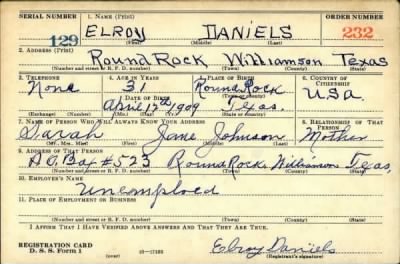 SERIAL NUMBER 1. NAME (Print) ORDER NUMBER
129 ELROY DANIELS 232
(First) (Middle) (Last)
2. ADDRESS (Print)
Round Rock Williamson Texas
(Number and street or R. F. D. number) (Town) (County) (State)
3. TELEPHONE 4. AGE IN YEARS 5. PLACE OF BIRTH 6. COUNTRY OF CITIZENSHIP
None 31 Round Rock
DATE OF BIRTH (Town or county) U.S.a.
April 12th 1909 Texas.
(Exchange) (Number) (Mo.) (Day) (Yr.) (State or country)
7. NAME OF PERSON WHO WILL ALWAYS KNOW YOUR ADDRESS 8. RELATIONSHIP OF THAT PERSON
Sarah Jane Johnson Mother
(Mr., Mrs., Miss) (First) (Middle) (Last)
9. ADDRESS OF THAT PERSON
P.O. Box # 523 Round Rock, Williamson Texas,
(Number and street or R. F. D. number) (Town) (County) (State)
10. EMPLOYER'S NAME
Unemploed
11. PLACE OF EMPLOYMENT OR BUSINESS
(Number and street or R. F. D. number) (Town) (County) (State)
I AFFIRM THAT I HAVE VERIFIED ABOVE ANSWERS AND THAT THEY ARE TRUE.
REGISTRATION CARD
D. S. S. Form 1 Elroy Daniels
(Registrant's signature)